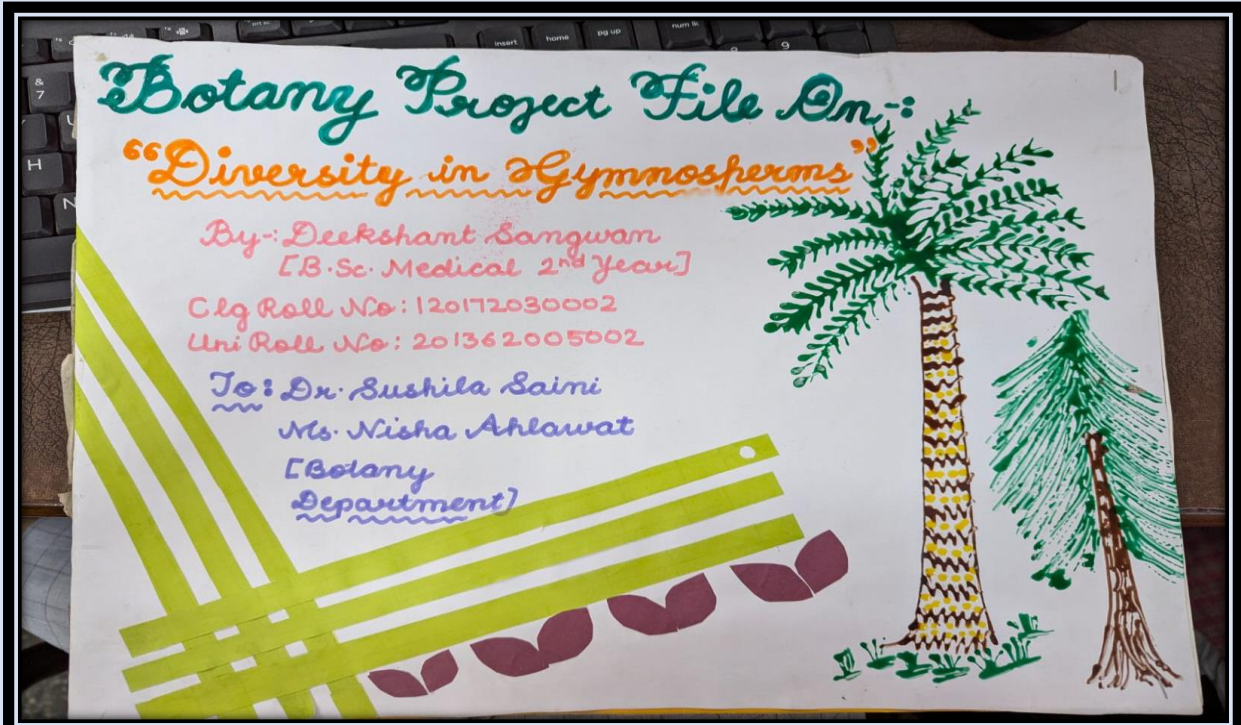 insert home pg up num lk
8 9
&
7
H
N
Botany Project File On-:
"Diversity in Gymnosperms"
By-: Deekshant Sangwan
[B.Sc. Medical 2nd Year]
Clg Roll No: 120172030002
Uni Roll No: 201362005002
To: Dr. Sushila Saini
Ms. Nisha Ahlawat
[Botany
Department]